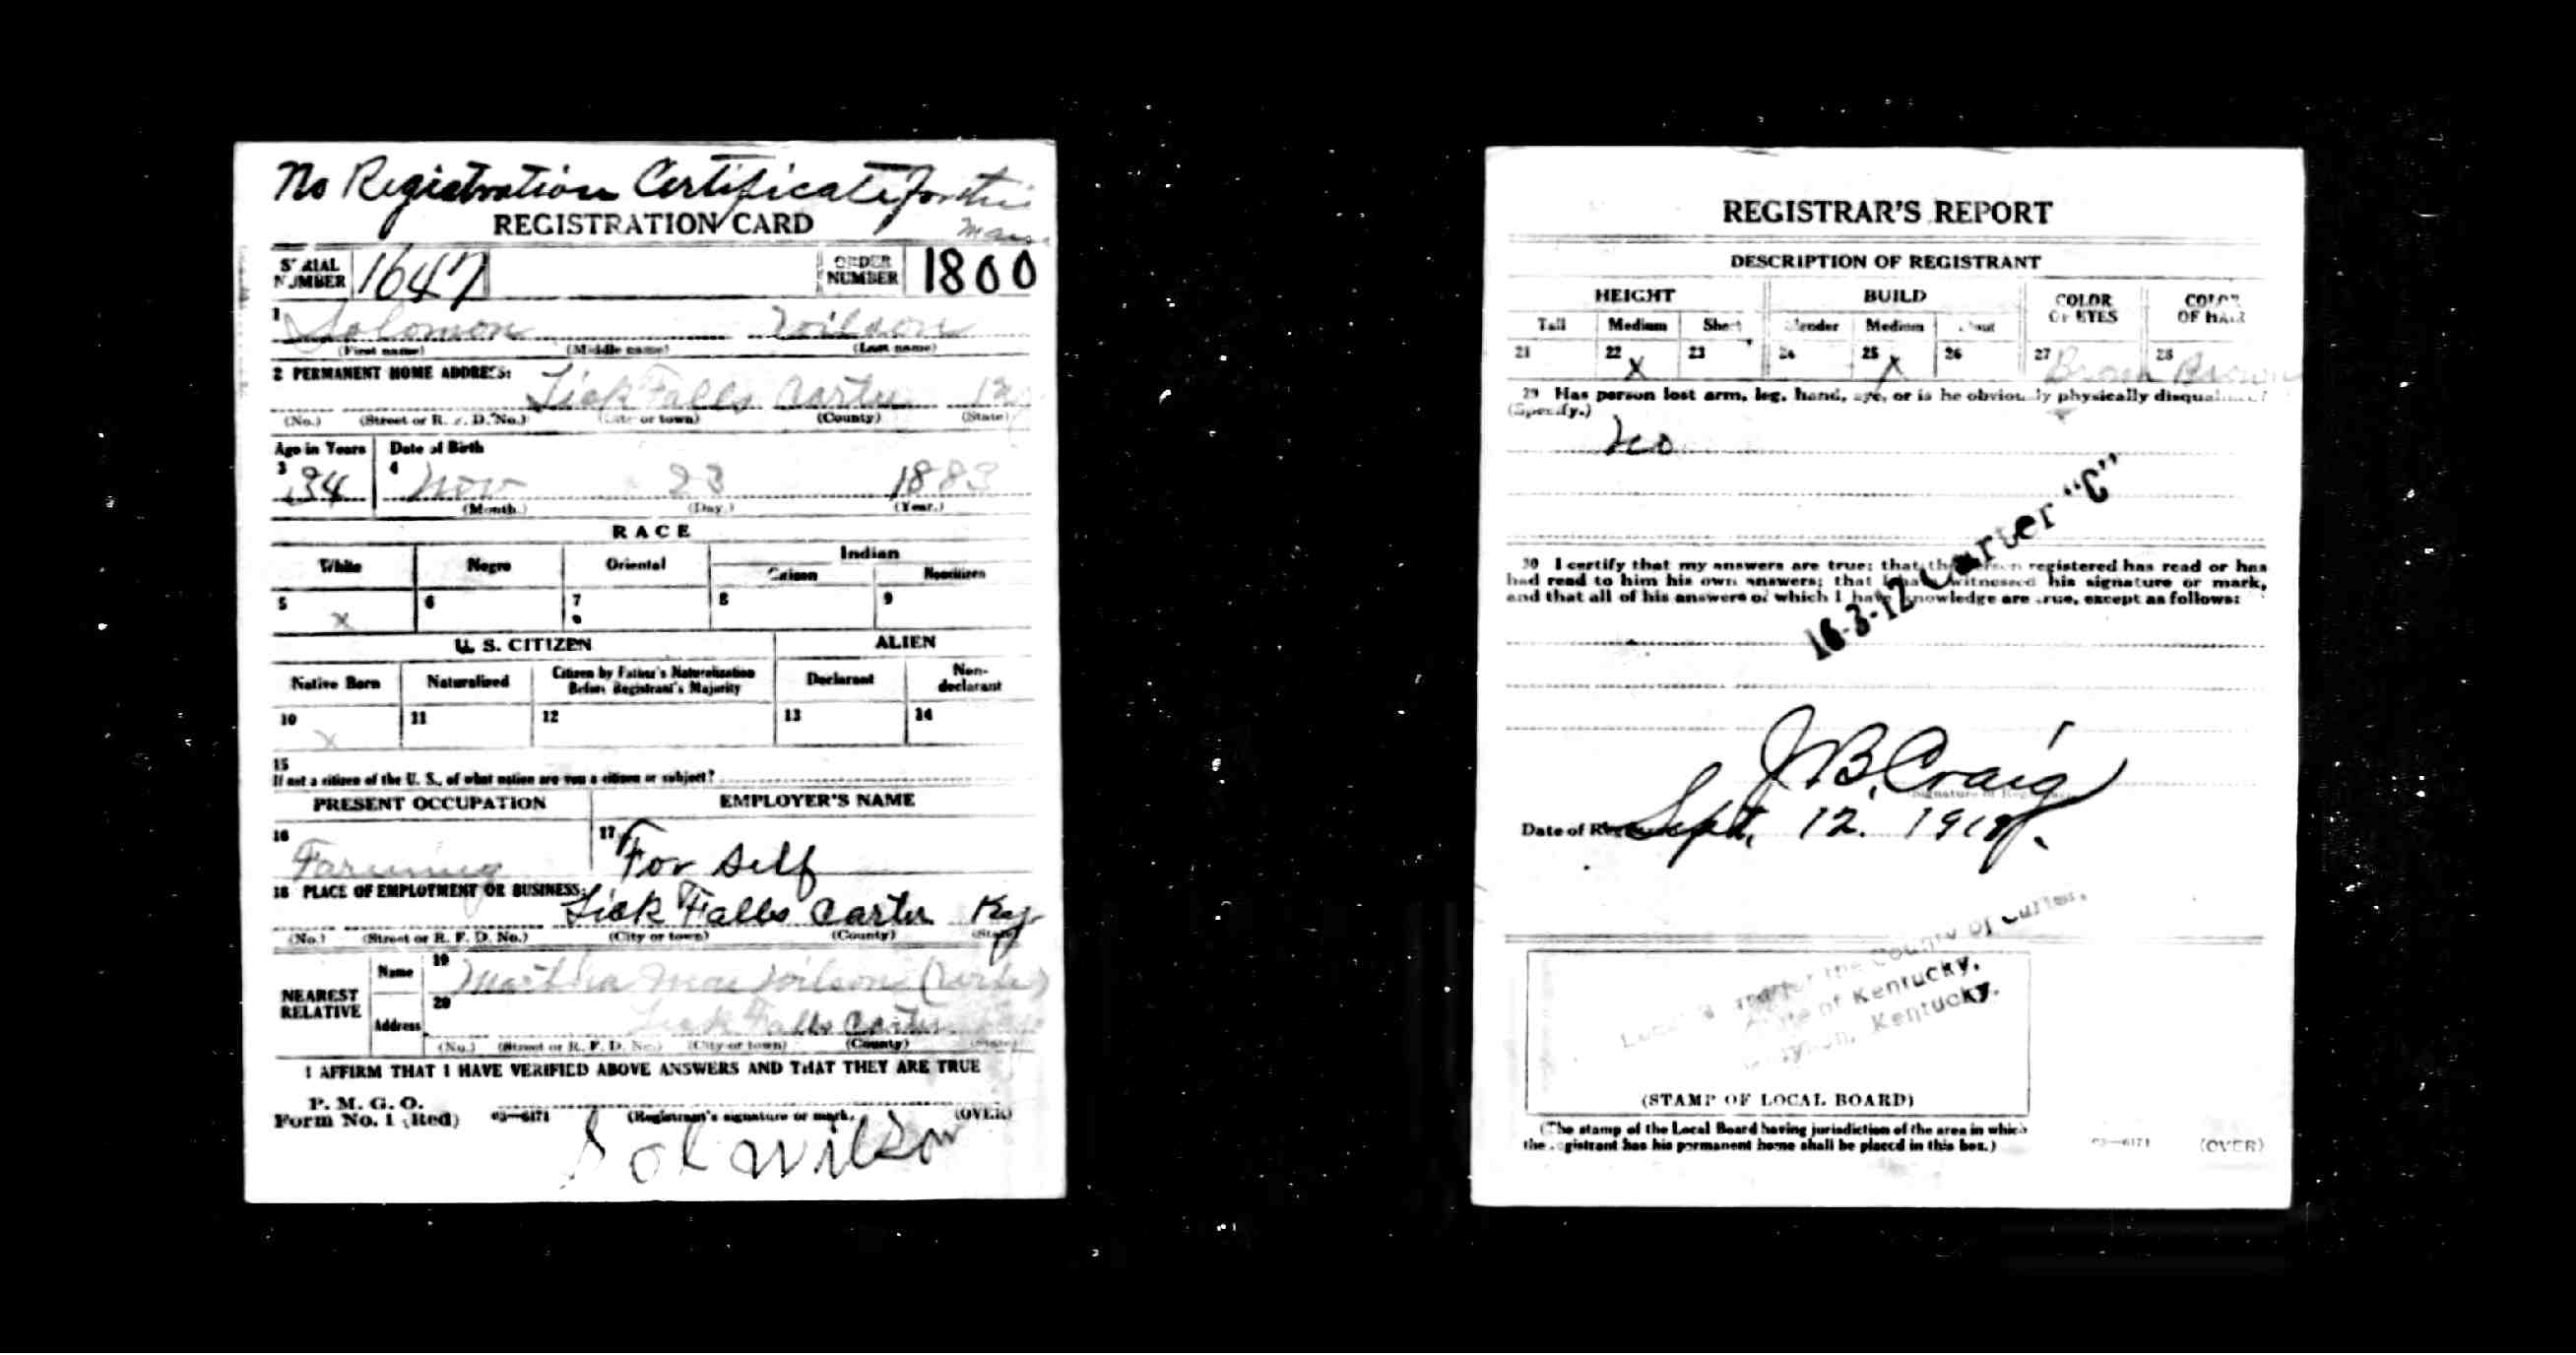 No Registration Certificate for this
man
REGISTRATION CARD
SERIAL NUMBER 1647 ORDER NUMBER 1800
1 Solomon Wilson
(First name) (Middle name) (Last name)
2 PERMANENT HOME ADDRESS:
Lick Falls Carter Ky
(No.) (Street or R. F. D. No.) (City or town) (County) (State)
Age in Years Date of Birth
3 34 4 Nov 23 1883
(Month.) (Day.) (Year.)
RACE
White Negro Oriental Indian
Citizen Noncitizen
5 X 6 7 8 9
U. S. CITIZEN ALIEN
Native Born Naturalized Citizen by Father's Naturalization Before Registrant's Majority Declarant Non-declarant
10 X 11 12 13 14
15
If not a citizen of the U. S., of what nation are you a citizen or subject?
PRESENT OCCUPATION EMPLOYER'S NAME
16 Farming 17 For Self
18 PLACE OF EMPLOYMENT OR BUSINESS:
Lick Falls Carter Ky
(No.) (Street or R. F. D. No.) (City or town) (County) (State)
NEAREST RELATIVE
Name 19 Martha Mae Wilson (wife)
Address 20 Lick Falls Carter
(No.) (Street or R. F. D. No.) (City or town) (County) (State)
I AFFIRM THAT I HAVE VERIFIED ABOVE ANSWERS AND THAT THEY ARE TRUE
P. M. G. O.
Form No. 1 (Red) 03—6171 (Registrant's signature or mark) (OVER)
Sol Wilson
REGISTRAR'S REPORT
DESCRIPTION OF REGISTRANT
HEIGHT BUILD COLOR OF EYES COLOR OF HAIR
Tall Medium Short Slender Medium Stout
21 22 X 23 24 25 X 26 27 Brown 28 Brown
29 Has person lost arm, leg, hand, eye, or is he obviously physically disqualified?
(Specify.)
No
30 I certify that my answers are true; that the person registered has read or has
had read to him his own answers; that I have witnessed his signature or mark,
and that all of his answers of which I have knowledge are true, except as follows:
16-3-12 Carter "C"
J B Craig
(Signature of Registrar)
Date of Registration Sept. 12. 1918.
Local Board for the County of Carter,
State of Kentucky,
Grayson, Kentucky.
(STAMP OF LOCAL BOARD)
(The stamp of the Local Board having jurisdiction of the area in which
the registrant has his permanent home shall be placed in this box.)
03—6171 (OVER)